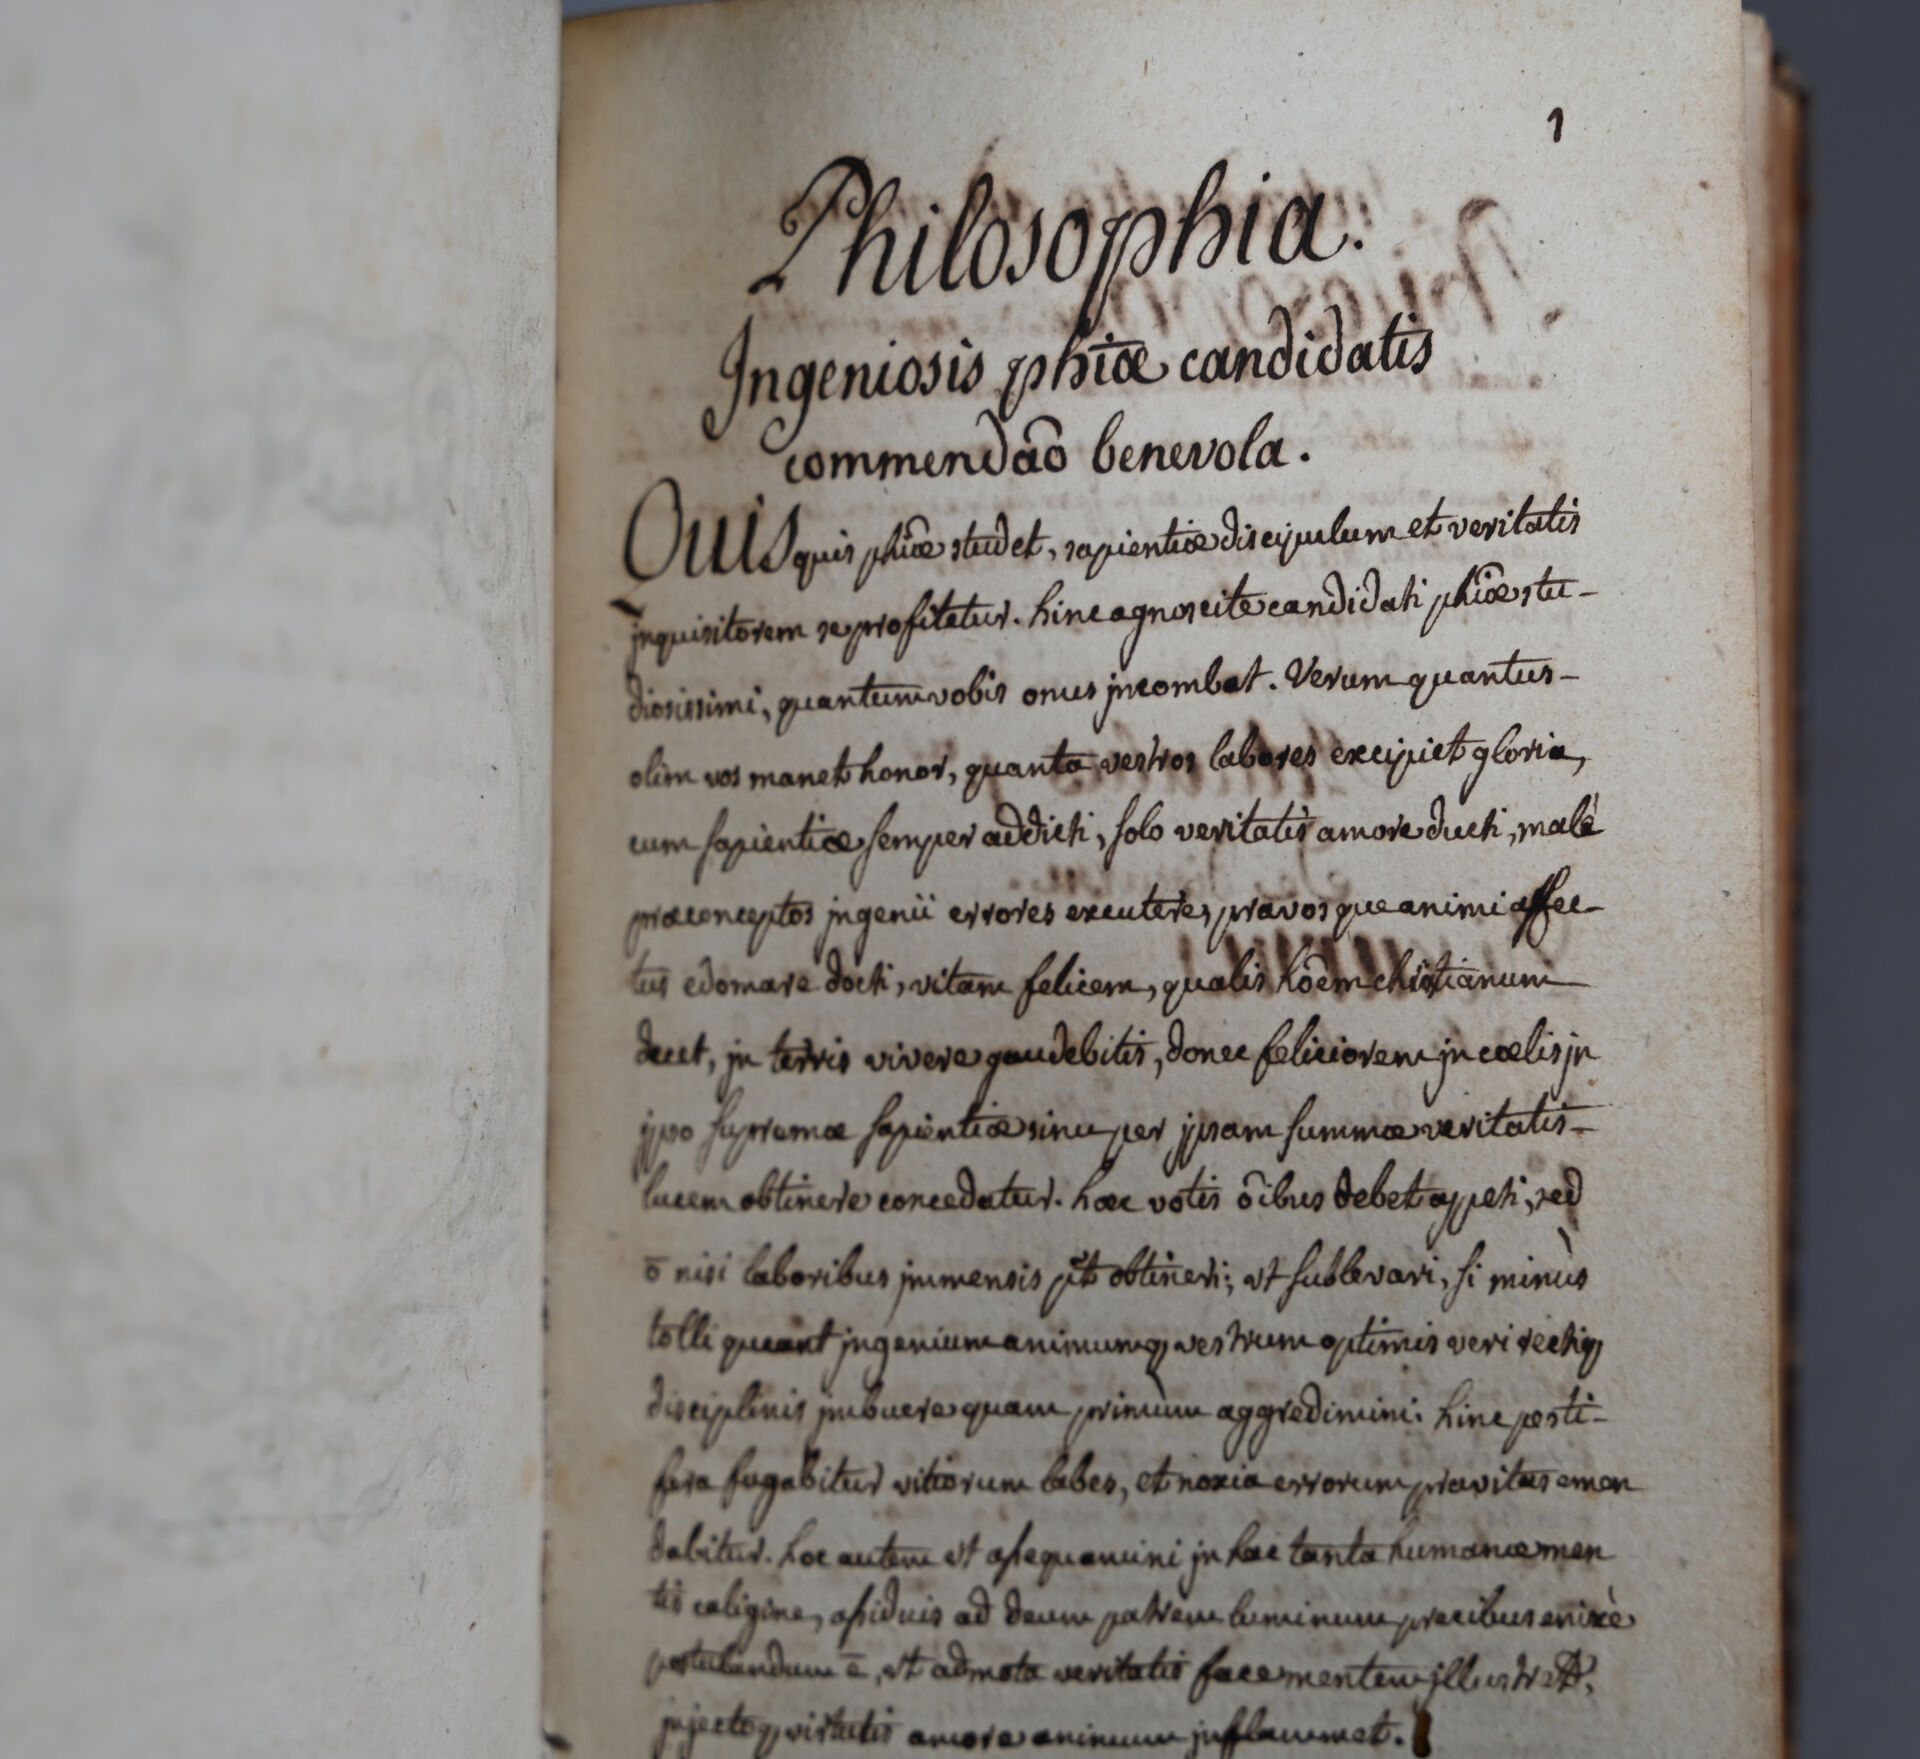 1
Philosophia.
Ingeniosis phiæ candidatis
commendão benevola.
Quisquis phiæ studet, sapientiæ discipulum et veritatis
jnquisitorem se profitetur. hinc agnoscite candidati phiæ stu-
diosissimi, quantum vobis onus jncombat. Verum quantus-
olim vos manet honor, quanta vestros labores excipiet gloria,
cum sapientiæ semper addicti, solo veritatis amore ducti, malè
præconceptos jngenii errores excutere, pravosque animi affec-
tus edomare docti, vitam felicem, qualis hõem christianum
decet, jn terris vivere gaudebitis, donec feliciorem jn cœlis jn
jpso supremæ sapientiæ sinu per jpsam summæ veritatis-
lucem obtinere concedatur. hæc votis õibus debet appeti, sed
õ nisi laboribus jmmensis pt̃ obtineri; vt sublevari, si minùs
tolli queant jngenium animumq, vestrum optimis veri rectiq,
disciplinis jmbuere quam primùm aggredimini. hinc pesti-
fera fugabitur vitiorum labes, et noxia errorum pravitas emen
dabitur. hoc autem vt assequamini jn hac tanta humanæ men
tis caligine, assiduis ad deum patrem luminum precibus enixè
postulandum ē, vt admota veritatis face mentem jllustret,
jnjectoq, virtutis amore animum jnflammet.